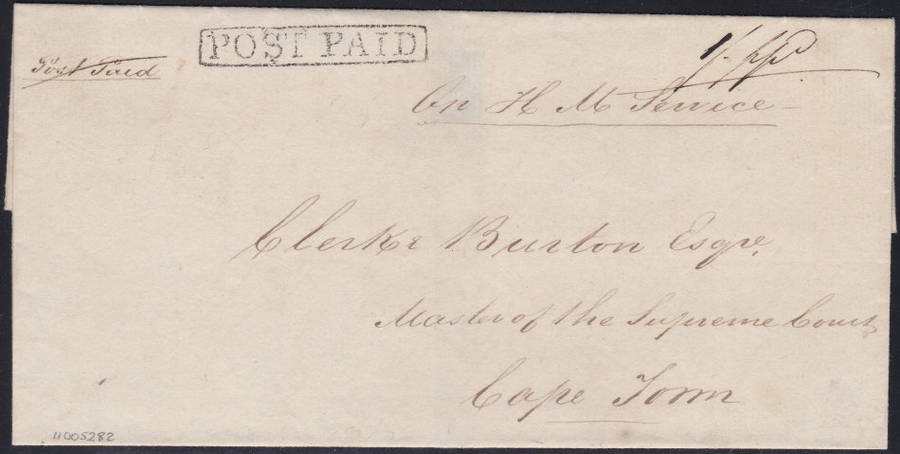 POST PAID
Post Paid
On H M Service
Clerke Burton Esqre,
Master of the Supreme Court
Cape Town
11005282